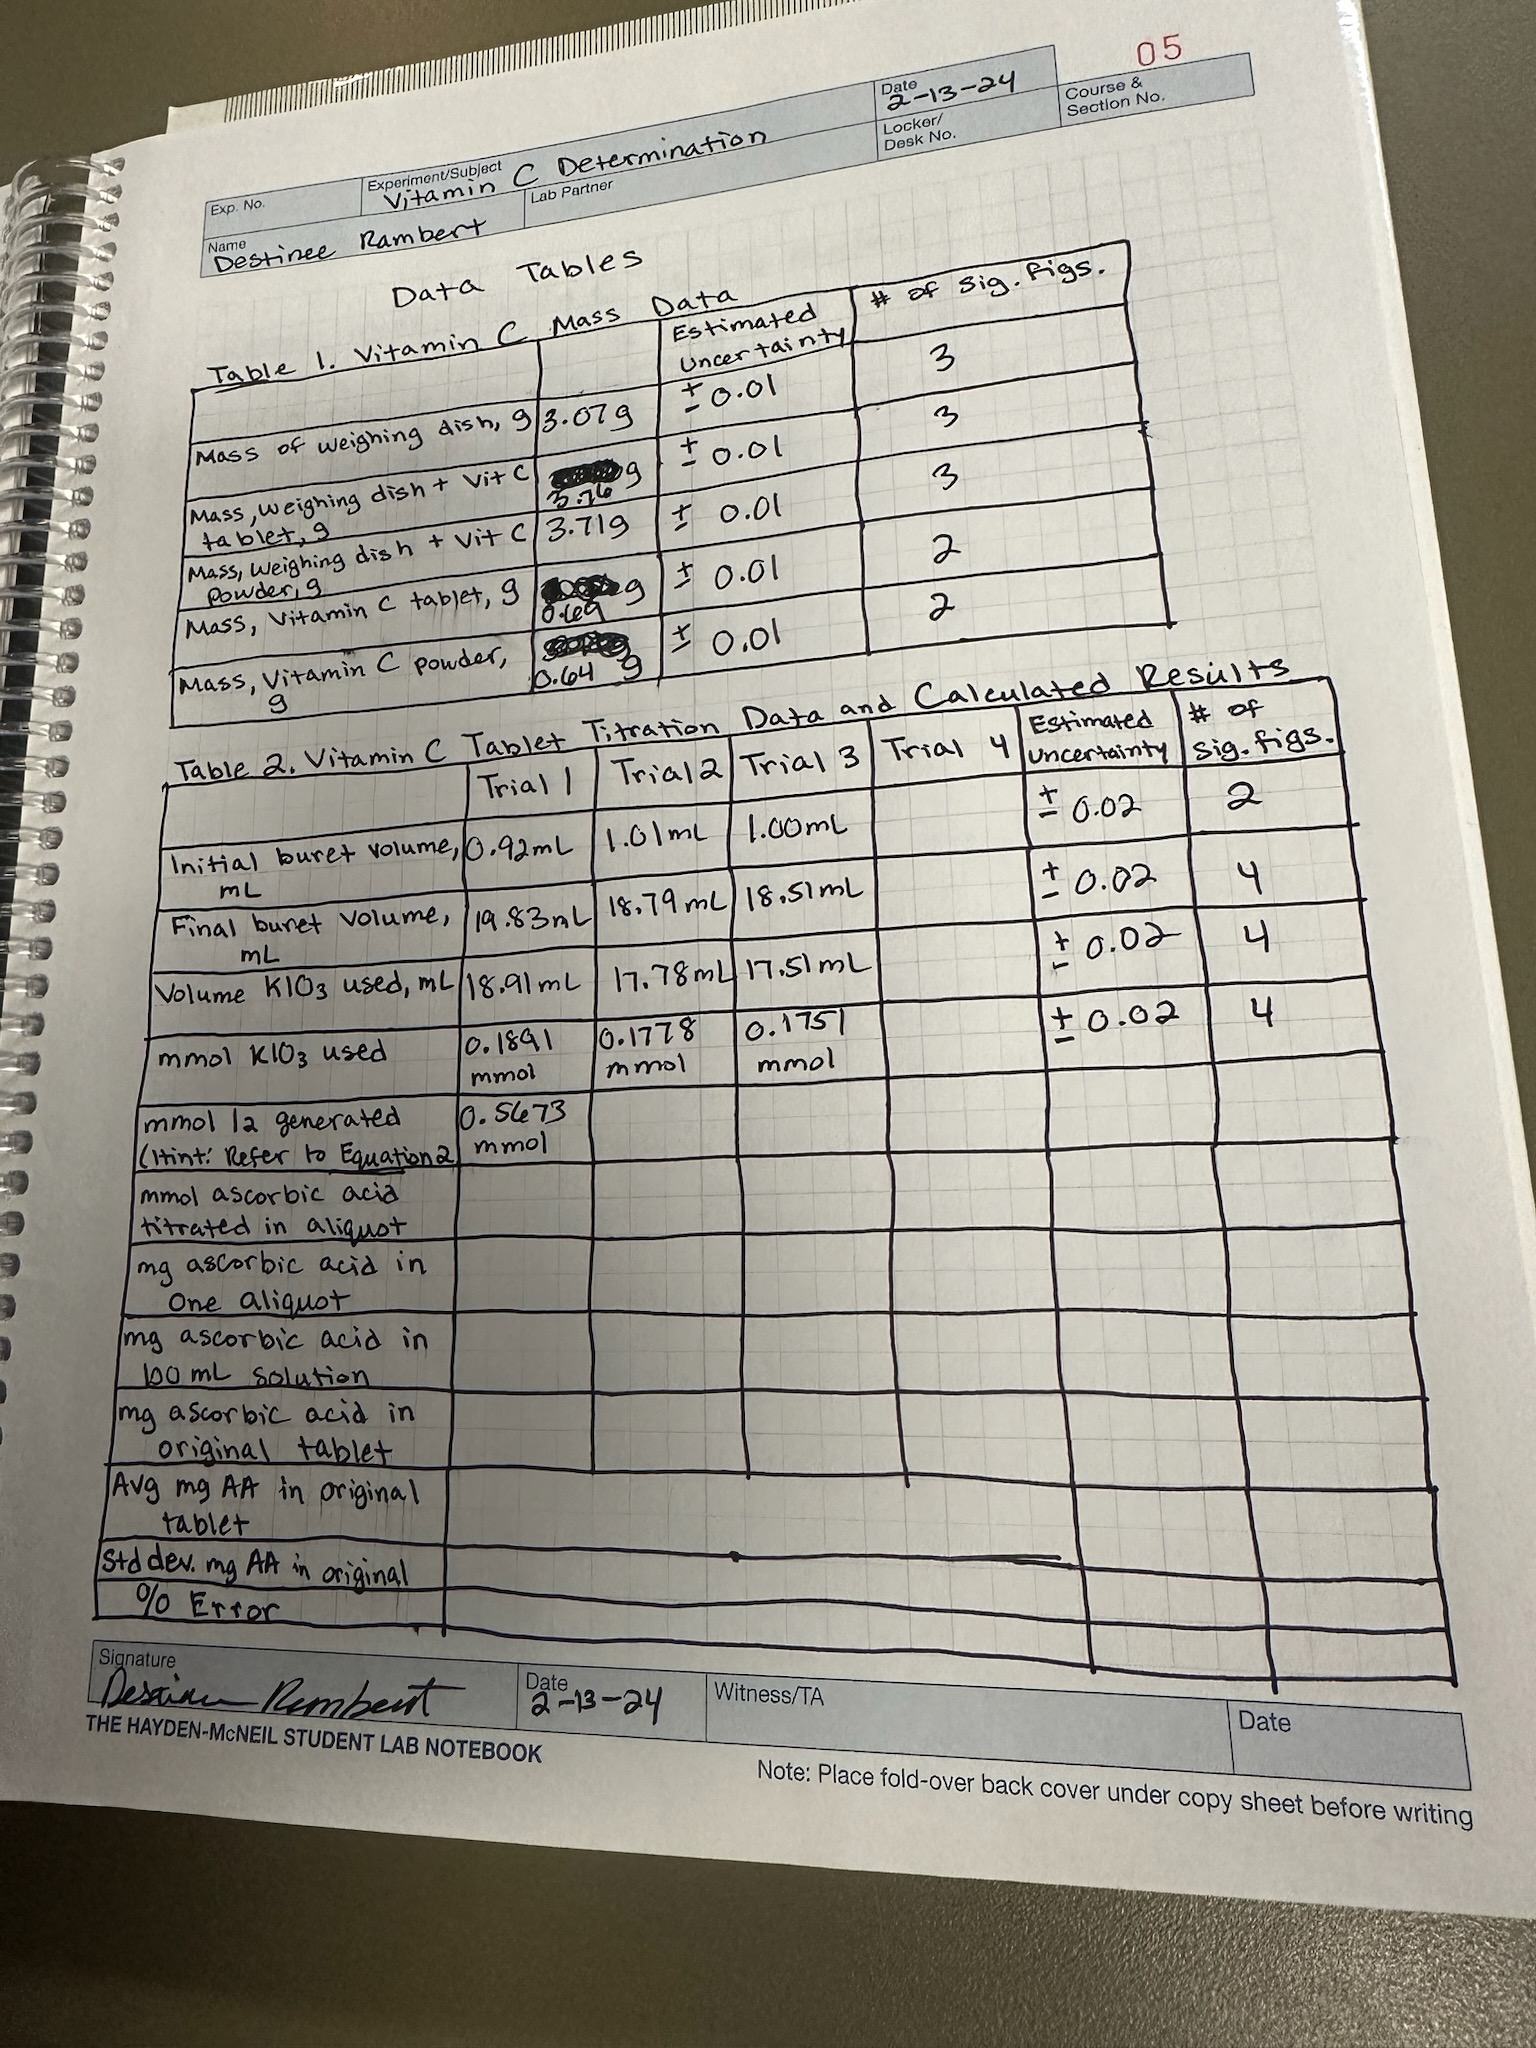 05
Exp. No.
Experiment/Subject
Vitamin C Determination
Date
2-13-24
Course &
Section No.
Name
Destinee Rambert
Lab Partner
Locker/
Desk No.
Data Tables
Table 1. Vitamin C Mass Data
Estimated
Uncertainty
# of Sig. Figs.
Mass of weighing dish, g 3.07g ± 0.01 3
Mass, weighing dish + Vit C
tablet, g
g
3.76
± 0.01 3
Mass, weighing dish + Vit C
powder, g
3.71g ± 0.01 3
Mass, Vitamin C tablet, g
g
0.69
± 0.01 2
Mass, Vitamin C powder,
g
0.64 g ± 0.01 2
Table 2. Vitamin C Tablet Titration Data and Calculated Results
Trial 1 Trial 2 Trial 3 Trial 4
Estimated
Uncertainty
# of
sig. figs.
Initial buret volume,
mL
0.92mL 1.01mL 1.00mL ± 0.02 2
Final buret volume,
mL
19.83mL 18.79mL 18.51mL ± 0.02 4
Volume KIO3 used, mL 18.91mL 17.78mL 17.51mL ± 0.02 4
mmol KIO3 used
0.1891
mmol
0.1778
mmol
0.1751
mmol
± 0.02 4
mmol I2 generated
(Hint: Refer to Equation 2
0.5673
mmol
mmol ascorbic acid
titrated in aliquot
mg ascorbic acid in
one aliquot
mg ascorbic acid in
100 mL solution
mg ascorbic acid in
original tablet
Avg mg AA in original
tablet
Std dev. mg AA in original
% Error
Signature
Destinee Rambert
Date
2-13-24
Witness/TA
Date
THE HAYDEN-McNEIL STUDENT LAB NOTEBOOK
Note: Place fold-over back cover under copy sheet before writing